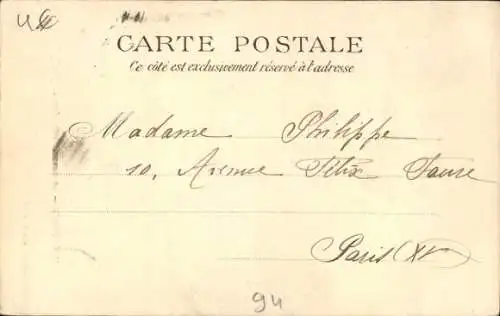 CARTE POSTALE
Ce côté est exclusivement réservé à l'adresse
Madame Philippe
10, Avenue Félix Faure
Paris (XV)
94